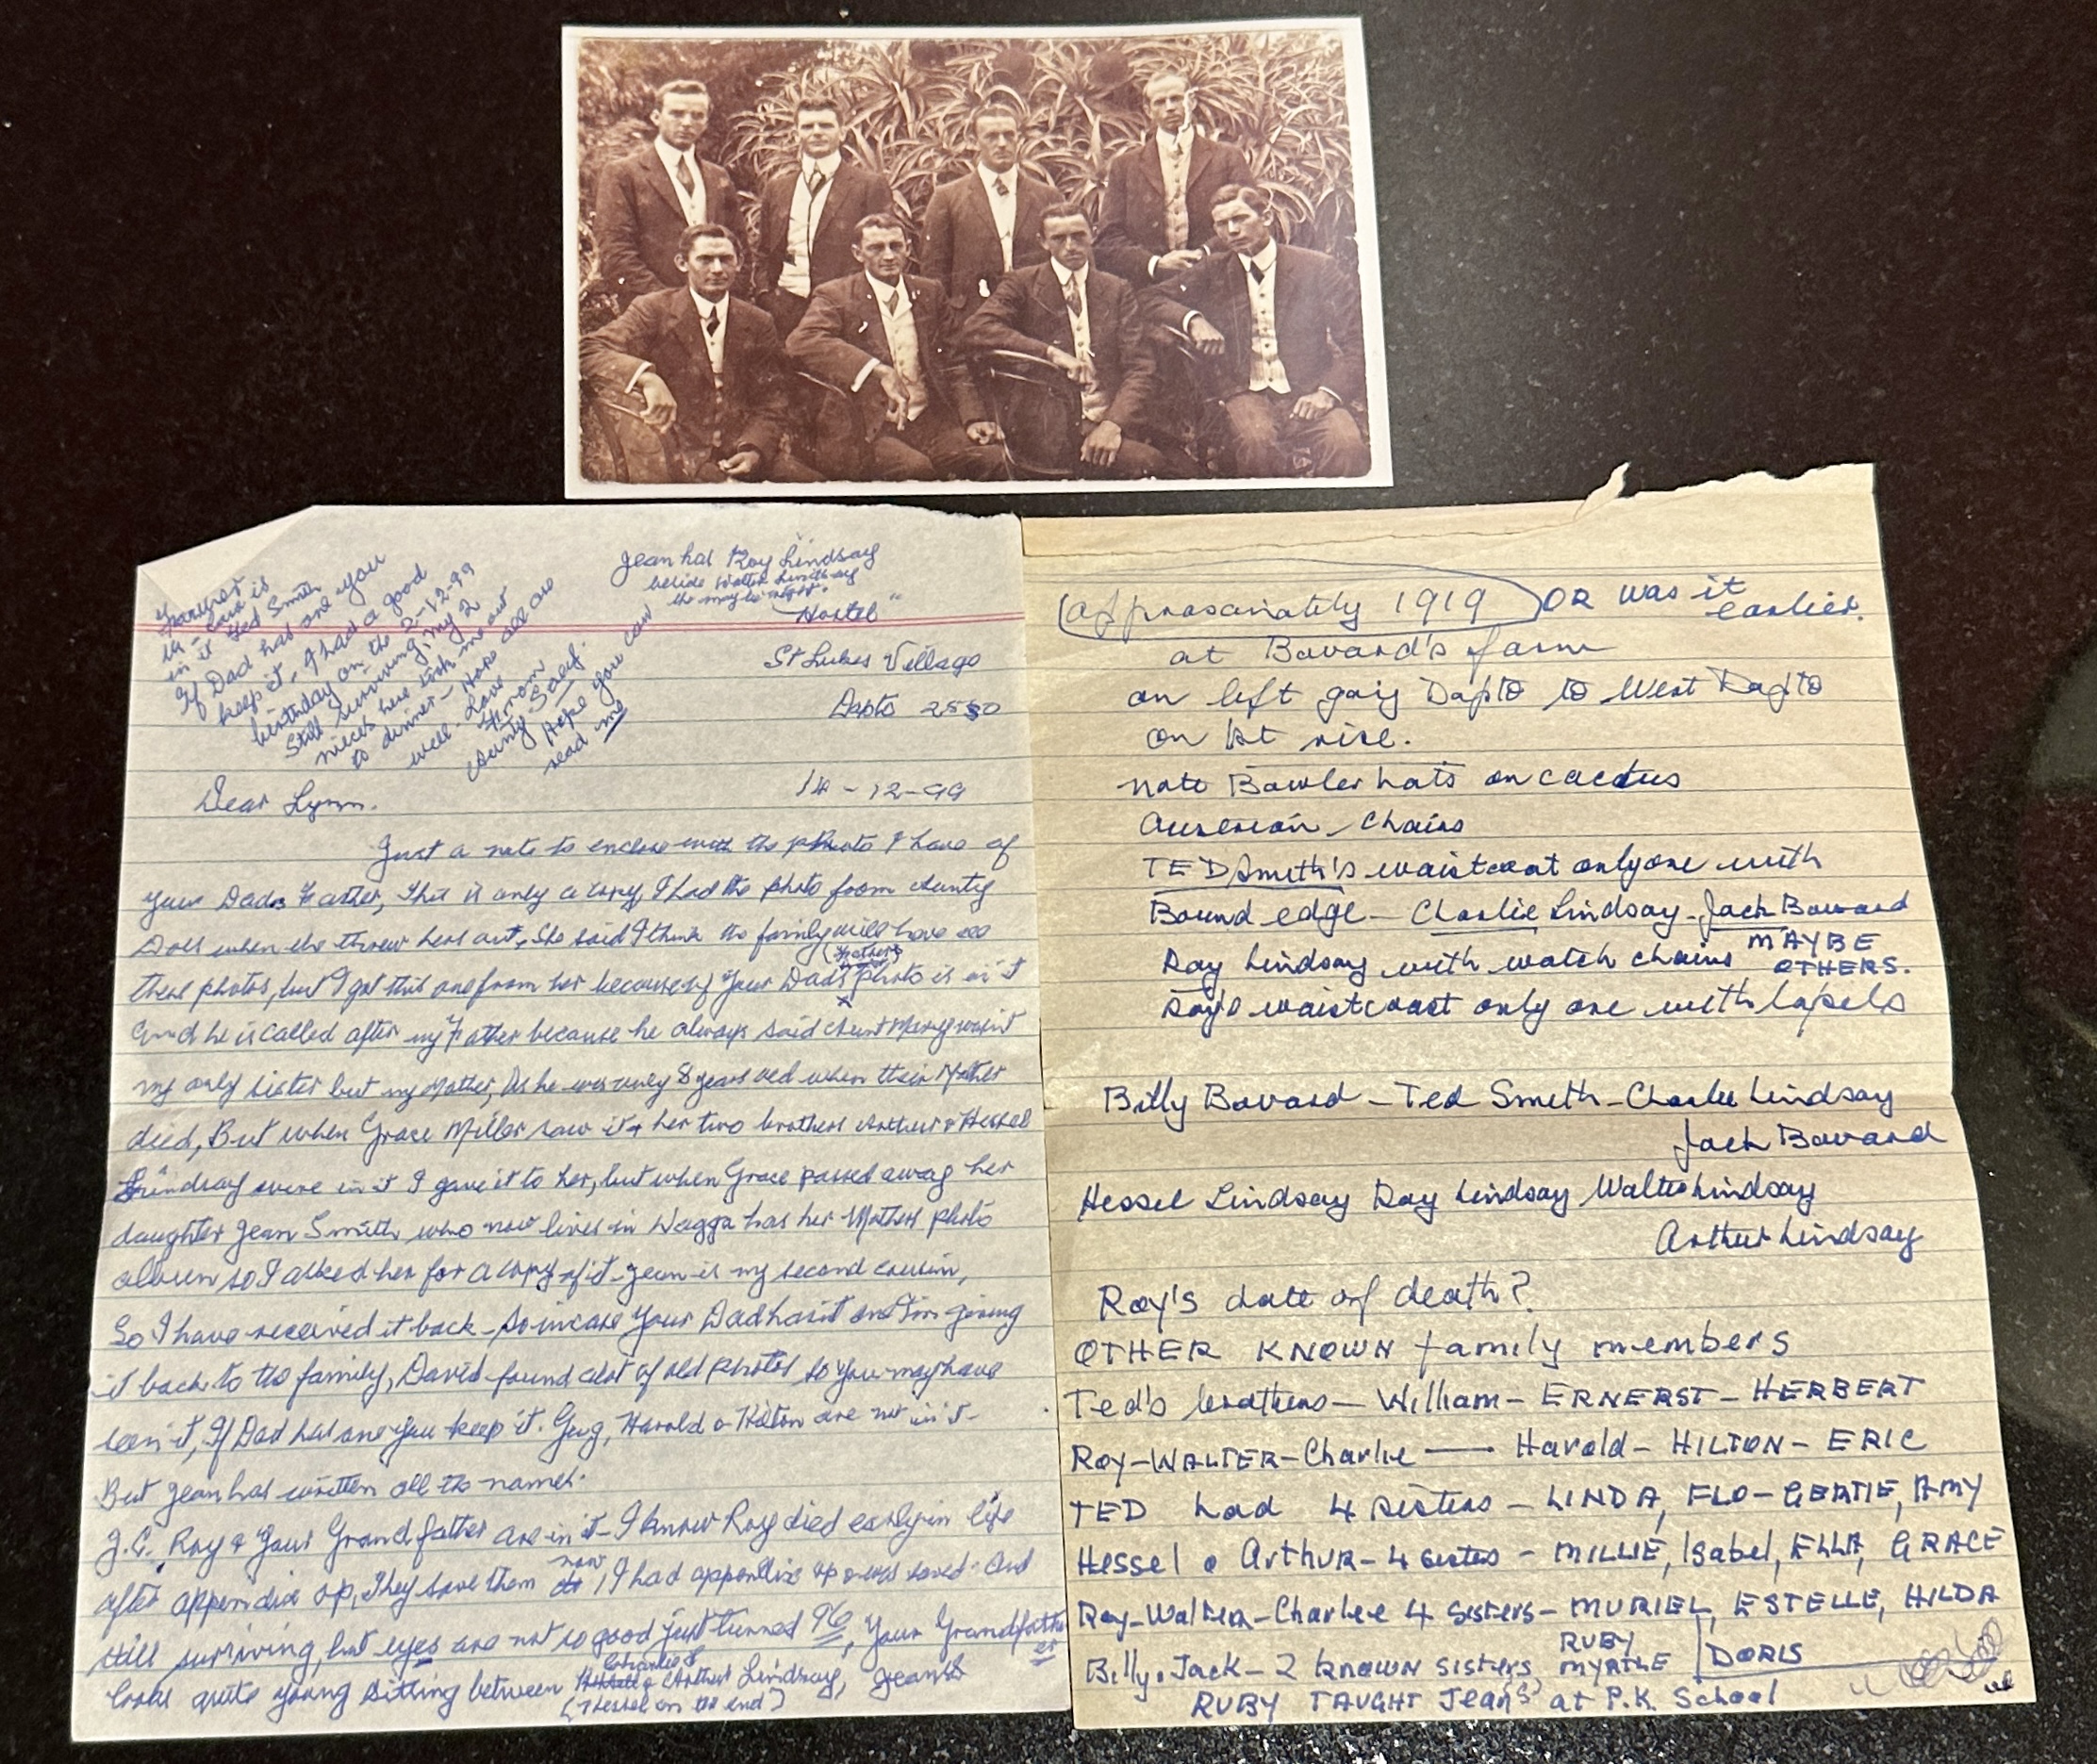 Jean has Roy Lindsay
beside Walter Lindsay
she may be right.
Margaret is
in it Ted Smith
If Dad has one you
keep it, I had a good
birthday on the 2-12-99
Still surviving, my 2
nieces here took me out
to dinner - Hope all are
well - Love
from
Aunty Sally.
Hope you can
read me
Hostel"
St Lukes Village
Dapto 2530
14-12-99
Dear Lynn.
Just a note to enclose with the photo I have of
your Dads Father, This is only a copy, I had the photo from Aunty
Doll when she threw hers out, She said I think the family will have all
(Fathers
these photos, but I got this one from her because of your Dad's photo is in it
and he is called after my Father because he always said Aunt Mary wasn't
my only sister but my Mother, As he was only 8 years old when their Mother
died, But when Grace Miller saw it & her two brothers Arthur & Hessel
Lindsay were in it I gave it to her, but when Grace passed away her
daughter Jean Smith, who now lives in Wagga has her Mothers photo
album so I asked her for a copy of it - Jean is my second cousin,
So I have received it back - so incase your Dad hasn't one I'm giving
it back to the family, David found alot of old photos so you may have
seen it, If Dad has one you keep it. Harold & Hilton are not in it -
But Jean has written all the names.
J.C. Roy & Your Grandfather are in it - I know Roy died early in life
after appendix op, They save them now, I had appendix op & was saved - and
still surviving, but eyes are not so good just turned 96, Your Grandfather
looks quite young sitting between Charlie & Arthur Lindsay, Jean's
(Hessel on the end)
approximately 1919 OR was it
earlier.
at Bovard's farm
on left going Dapto to West Dapto
on 1st rise.
note Bowler hats on cactus
Austrian chairs
TED Smith's waistcoat only one with
Bound edge - Charlie Lindsay - Jack Bovard
Roy Lindsay with watch chains MAYBE
OTHERS.
Roy's waistcoat only one with lapels
Billy Bovard - Ted Smith - Charlie Lindsay
Jack Bovard
Hessel Lindsay Roy Lindsay Walter Lindsay
Arthur Lindsay
Roy's date of death?
OTHER KNOWN family members
Ted's brothers - William - ERNERST - HERBERT
Roy - WALTER - Charlie — Harold - HILTON - ERIC
TED had 4 sisters - LINDA, FLO - GERTIE, AMY
Hessel & ArthUR - 4 sisters - MILLIE, Isabel, ELLA, GRACE
Roy - Walter - Charlie 4 sisters - MURIEL, ESTELLE, HILDA
DORIS
Billy. Jack - 2 KNOWN SISTERS RUBY
MYRTLE
RUBY TAUGHT Jean(S) at P.K. School